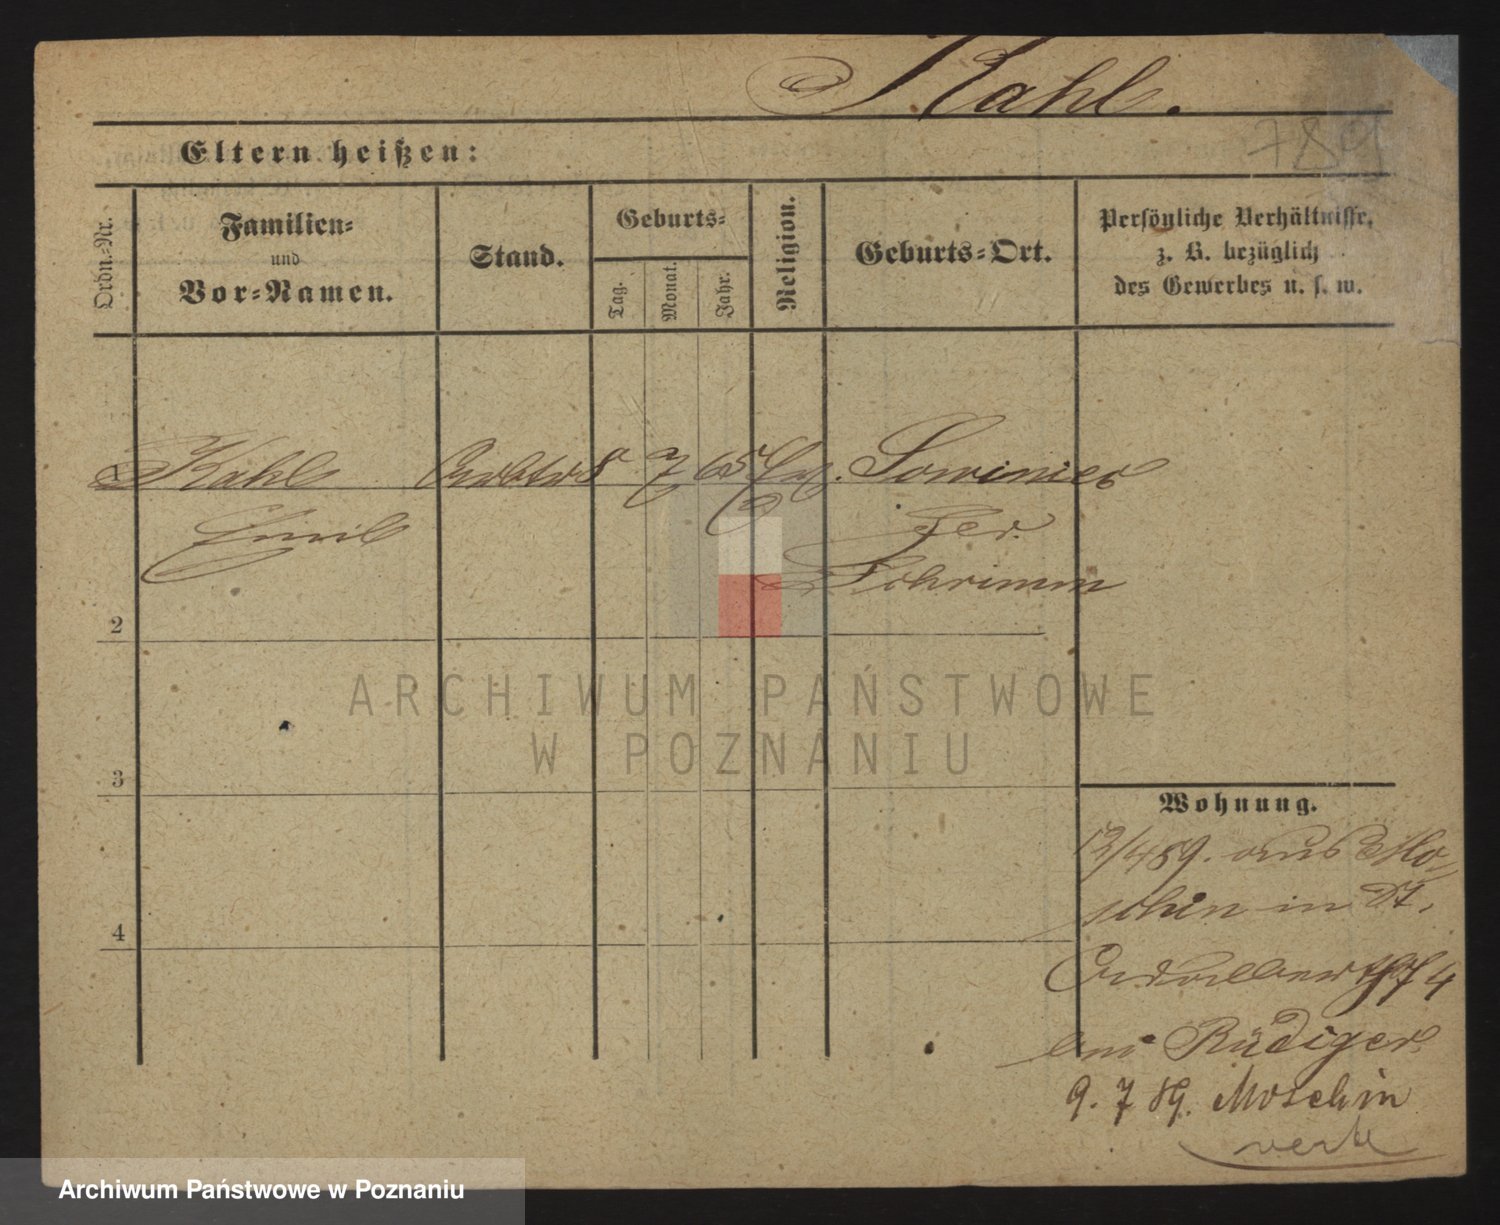 Kahl.
789
Eltern heißen:
Ordn.-Nr.
Familien-
und
Vor-Namen.
Stand.
Geburts-
Tag.
Monat.
Jahr.
Religion.
Geburts-Ort.
Persönliche Verhältnisse,
z. B. bezüglich
des Gewerbes u. s. w.
1 Kahl Arbtr 8 7 65 Sowiniec
Emil Per.
Schrimm
2
3
4
Wohnung.
13/4 89. aus Mo-
schin in St.
Adalbert 3/4
bei Rüdiger
9. 7 89. Moschin
ARCHIWUM PAŃSTWOWE
W POZNANIU
Archiwum Państwowe w Poznaniu